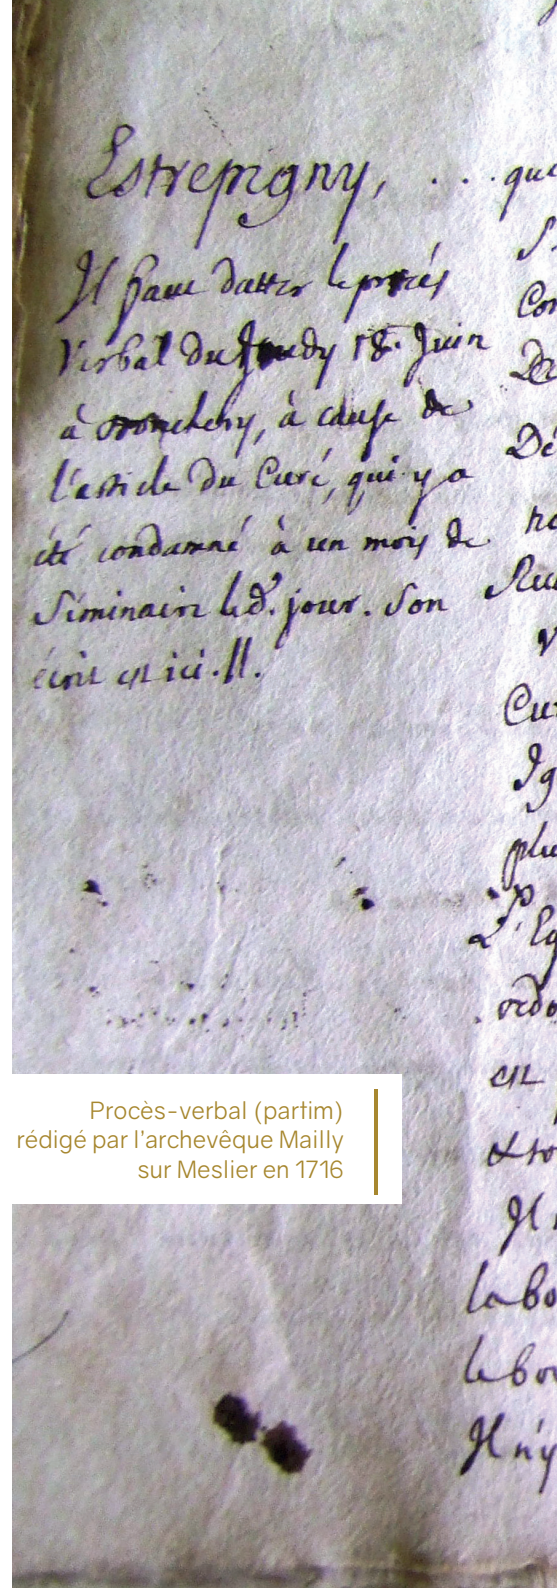 Estrepigny, . . . que
Il faut datter le procés
Verbal du Jeudy 18. Juin
à Donchery, à cause de
l'article du Curé, qui y a
été condamné à un mois de
Séminaire led. jour. Son
écrit est ici. ||.
S.
Con
De
Dé
no
Cur
Ig
plu
L'Eg
ordo
est
Il
la bo
le bo
Il n'y
Procès-verbal (partim)
rédigé par l'archevêque Mailly
sur Meslier en 1716